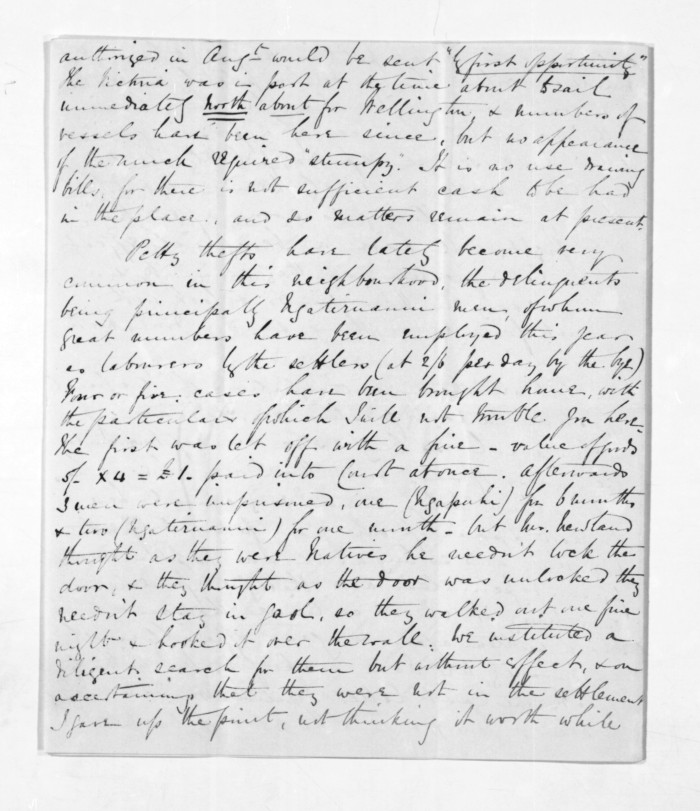 authorized in Augt. would be sent "by first opportunity"
The Victoria was in port at the time about to sail
immediately north about for Wellington, & numbers of
vessels have been here since, but no appearance
of the much required "stumpy". It is no use drawing
bills, for there is not sufficient cash to be had
in the place., and so matters remain at present.
Petty thefts have lately become very
common in this neighbourhood, the delinquents
being principally Ngatiruanui men, of whom
great numbers have been employed this year
as labourers by the settlers (at 2/6 per day by the bye)
Four or five cases have been brought home, with
the particulars of which I will not trouble you here
The first was let off with a fine - value of goods
5/- x 4 = £1 - paid into Court at once. Afterwards
3 men were imprisoned, one (Ngapuhi) for 6 months
& two (Ngatiruanui) for one month - but Mr. Newland
thought as they were Natives he needn't lock the
door, & they thought as the door was unlocked they
needn't stay in gaol, so they walked out one fine
night & hooked it over the wall. We instituted a
diligent search for them but without effect, & on
ascertaining that they were not in the settlement
I gave up the pursuit, not thinking it worth while